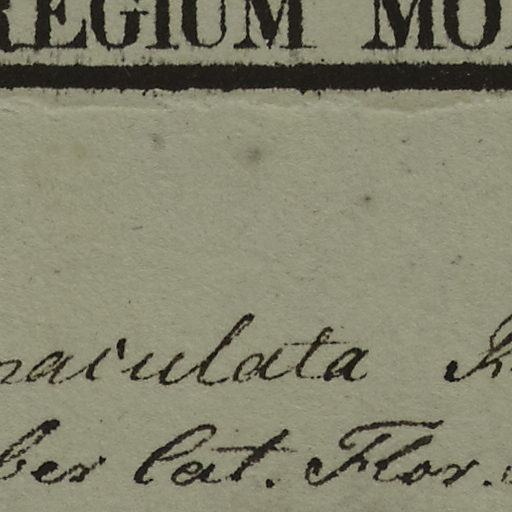 REGIUM MO
maculata
ber Cat. Flor.